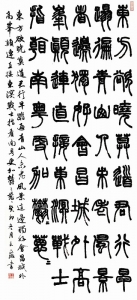 東方欲曉莫道君行早
踏遍青山人未老風景
這邊獨好會昌城外高
峯顛連直接東溟戰士
指看南粵更加鬱鬱蔥蔥
東方欲曉莫道君行早踏遍青山人未老風景這邊獨好會昌城外
高峰顛連直接東溟戰士指看南粵更加鬱鬱蔥蔥